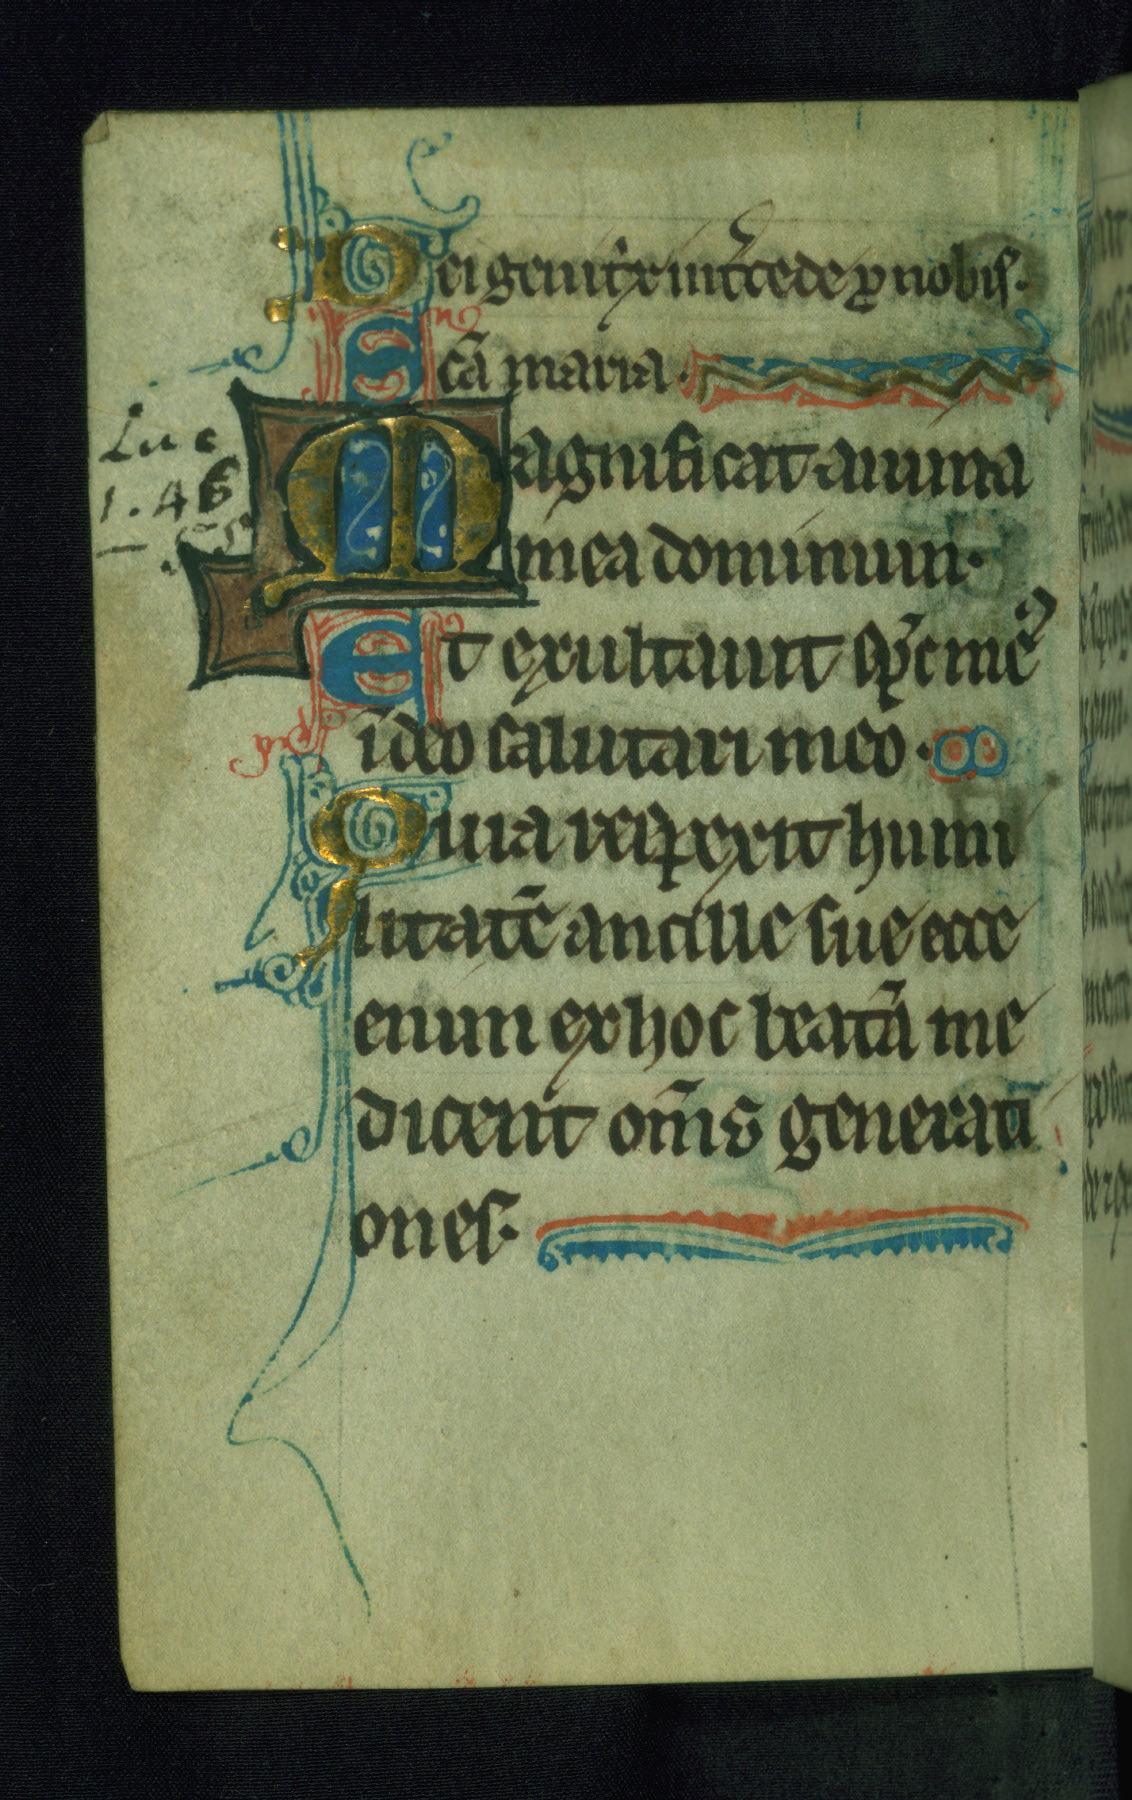 Dei genit͛x int͛cede ꝓ nobis.
Scā maria.
Luc
1. 46
55
Magnificat anima
mea dominum.
Et exultauit sp̄c meꝰ
ī deo salutari meo.
Quia respexit humi
litatē ancille sue ecce
enim ex hoc beatā me
dicent om̄s generati
ones.